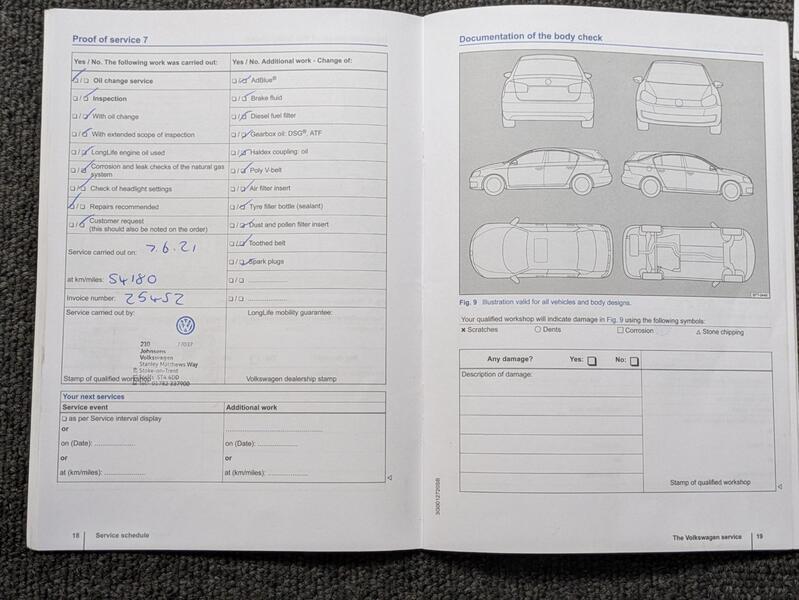 Proof of service 7
Yes / No. The following work was carried out:
Yes / No. Additional work - Change of:
❏ / ❏ Oil change service
❏ / ❏ AdBlue®
❏ / ❏ Inspection
❏ / ❏ Brake fluid
❏ / ❏ With oil change
❏ / ❏ Diesel fuel filter
❏ / ❏ With extended scope of inspection
❏ / ❏ Gearbox oil: DSG®, ATF
❏ / ❏ LongLife engine oil used
❏ / ❏ Haldex coupling: oil
❏ / ❏ Corrosion and leak checks of the natural gas
system
❏ / ❏ Poly V-belt
❏ / ❏ Check of headlight settings
❏ / ❏ Air filter insert
❏ / ❏ Repairs recommended
❏ / ❏ Tyre filler bottle (sealant)
❏ / ❏ Customer request
(this should also be noted on the order)
❏ / ❏ Dust and pollen filter insert
❏ / ❏ Toothed belt
Service carried out on: 7.6.21
❏ / ❏ Spark plugs
at km/miles: 54180
❏ / ❏ ................
Invoice number: 25452
❏ / ❏ ................
Service carried out by:
LongLife mobility guarantee:
210
Johnsons
Volkswagen
Stanley Matthews Way
Stoke-on-Trent
Staffs. ST4 4DD
Tel: 01782 337900
Stamp of qualified workshop
Volkswagen dealership stamp
Your next services
Service event
Additional work
❏ as per Service interval display
or
on (Date): ................
on (Date): ................
or
or
at (km/miles): ................
at (km/miles): ................
18 Service schedule
Documentation of the body check
Fig. 9 Illustration valid for all vehicles and body designs.
Your qualified workshop will indicate damage in Fig. 9 using the following symbols:
✗ Scratches
○ Dents
□ Corrosion
△ Stone chipping
Any damage? Yes: ❏ No: ❏
Description of damage:
Stamp of qualified workshop
3G0012720SB
The Volkswagen service 19